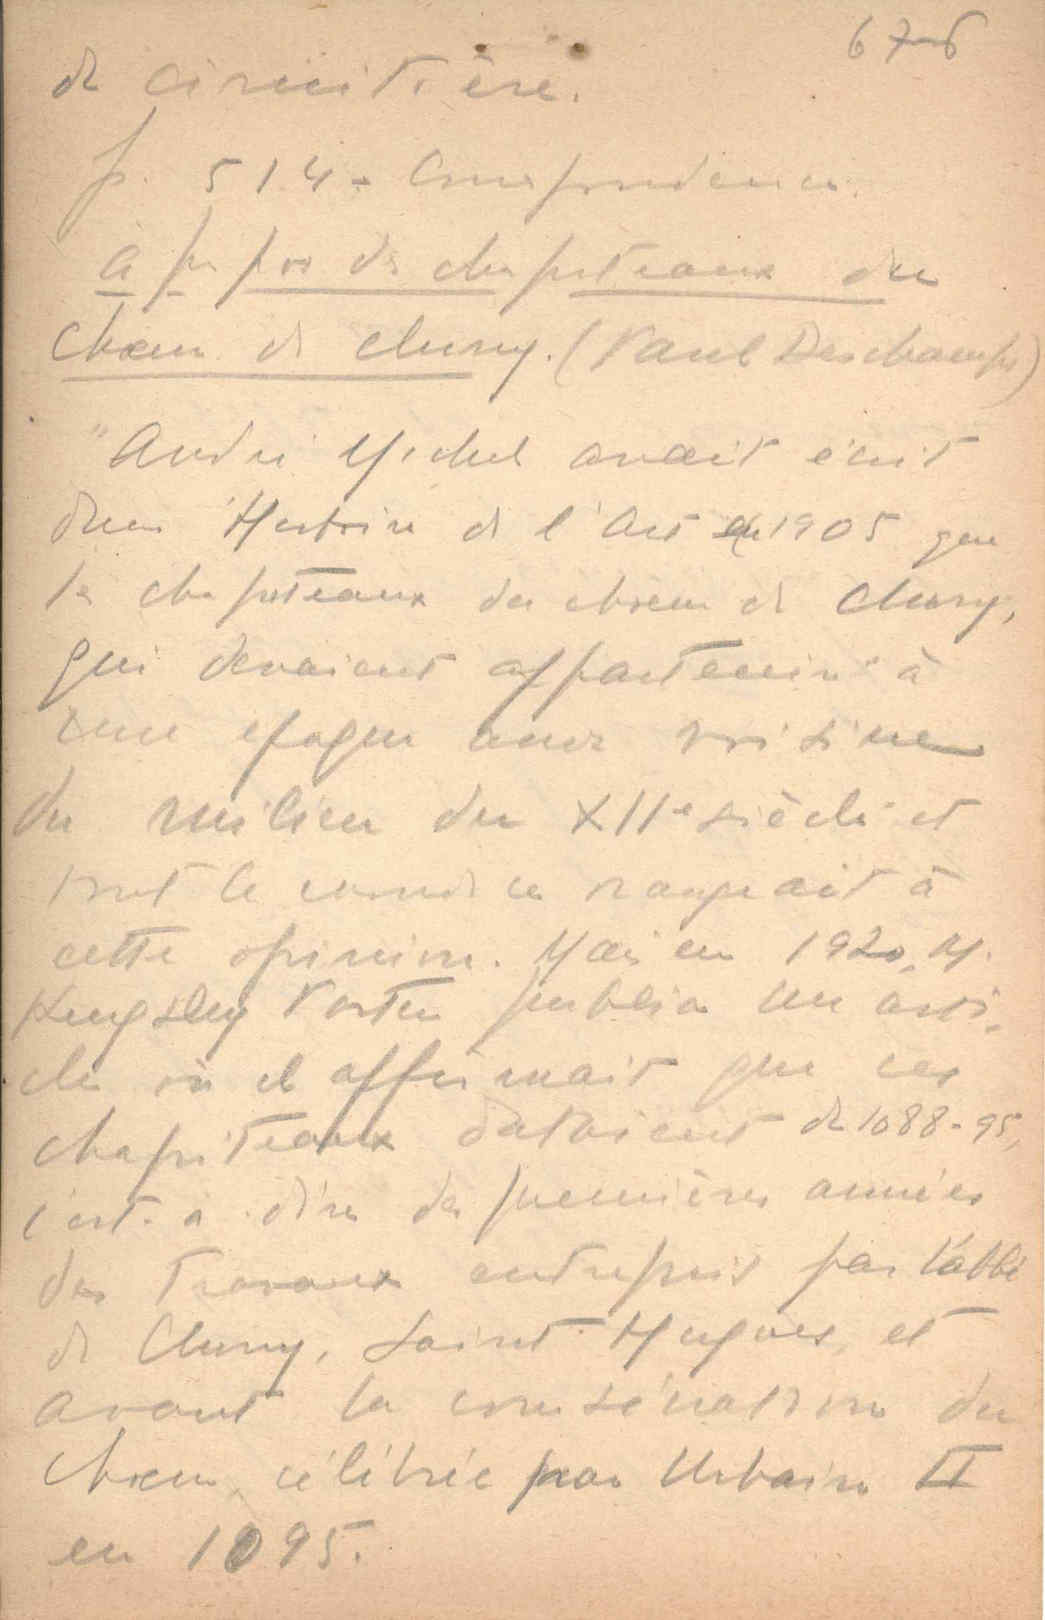 676
de cimetière.
p. 514 - Correspondance.
à propos des chapiteaux du
chœur de Cluny. (Paul Deschamps)
"André Michel avait écrit
dans l'Histoire de l'Art en 1905 que
les chapiteaux du chœur de Cluny,
qui devaient appartenir "à
une époque assez voisine
du milieu du XIIe siècle" et
tout le monde se rangeait à
cette opinion. Mais en 1920, M.
Kingsley Porter publia un arti-
cle où il affirmait que ces
chapiteaux dataient de 1088-95,
c'est-à-dire des premières années
des travaux entrepris par l'abbé
de Cluny, Saint Hugues, et
avant la consécration du
chœur, célébrée par Urbain II
en 1095.